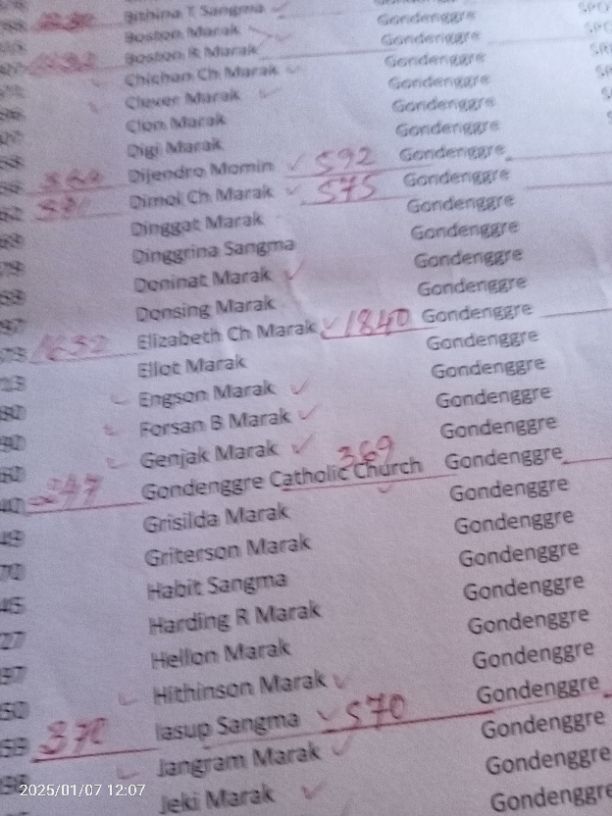 Bithina T Sangma Gondenggre
Boston Marak Gondenggre
Boston R Marak Gondenggre
Chichan Ch Marak Gondenggre
Clever Marak Gondenggre
Clon Marak Gondenggre
Digi Marak Gondenggre
Dijendro Momin 592 Gondenggre
Dimol Ch Marak 575 Gondenggre
Dinggat Marak Gondenggre
Dinggrina Sangma Gondenggre
Doninat Marak Gondenggre
Donsing Marak Gondenggre
1632 Elizabeth Ch Marak 1840 Gondenggre
Ellot Marak Gondenggre
Engson Marak Gondenggre
Forsan B Marak Gondenggre
Genjak Marak Gondenggre
247 Gondenggre Catholic Church 369 Gondenggre
Grisilda Marak Gondenggre
Griterson Marak Gondenggre
Habit Sangma Gondenggre
Harding R Marak Gondenggre
Hellon Marak Gondenggre
Hithinson Marak Gondenggre
370 Iasup Sangma 570 Gondenggre
Jangram Marak Gondenggre
Jeki Marak Gondenggre
Gondenggre
2025/01/07 12:07